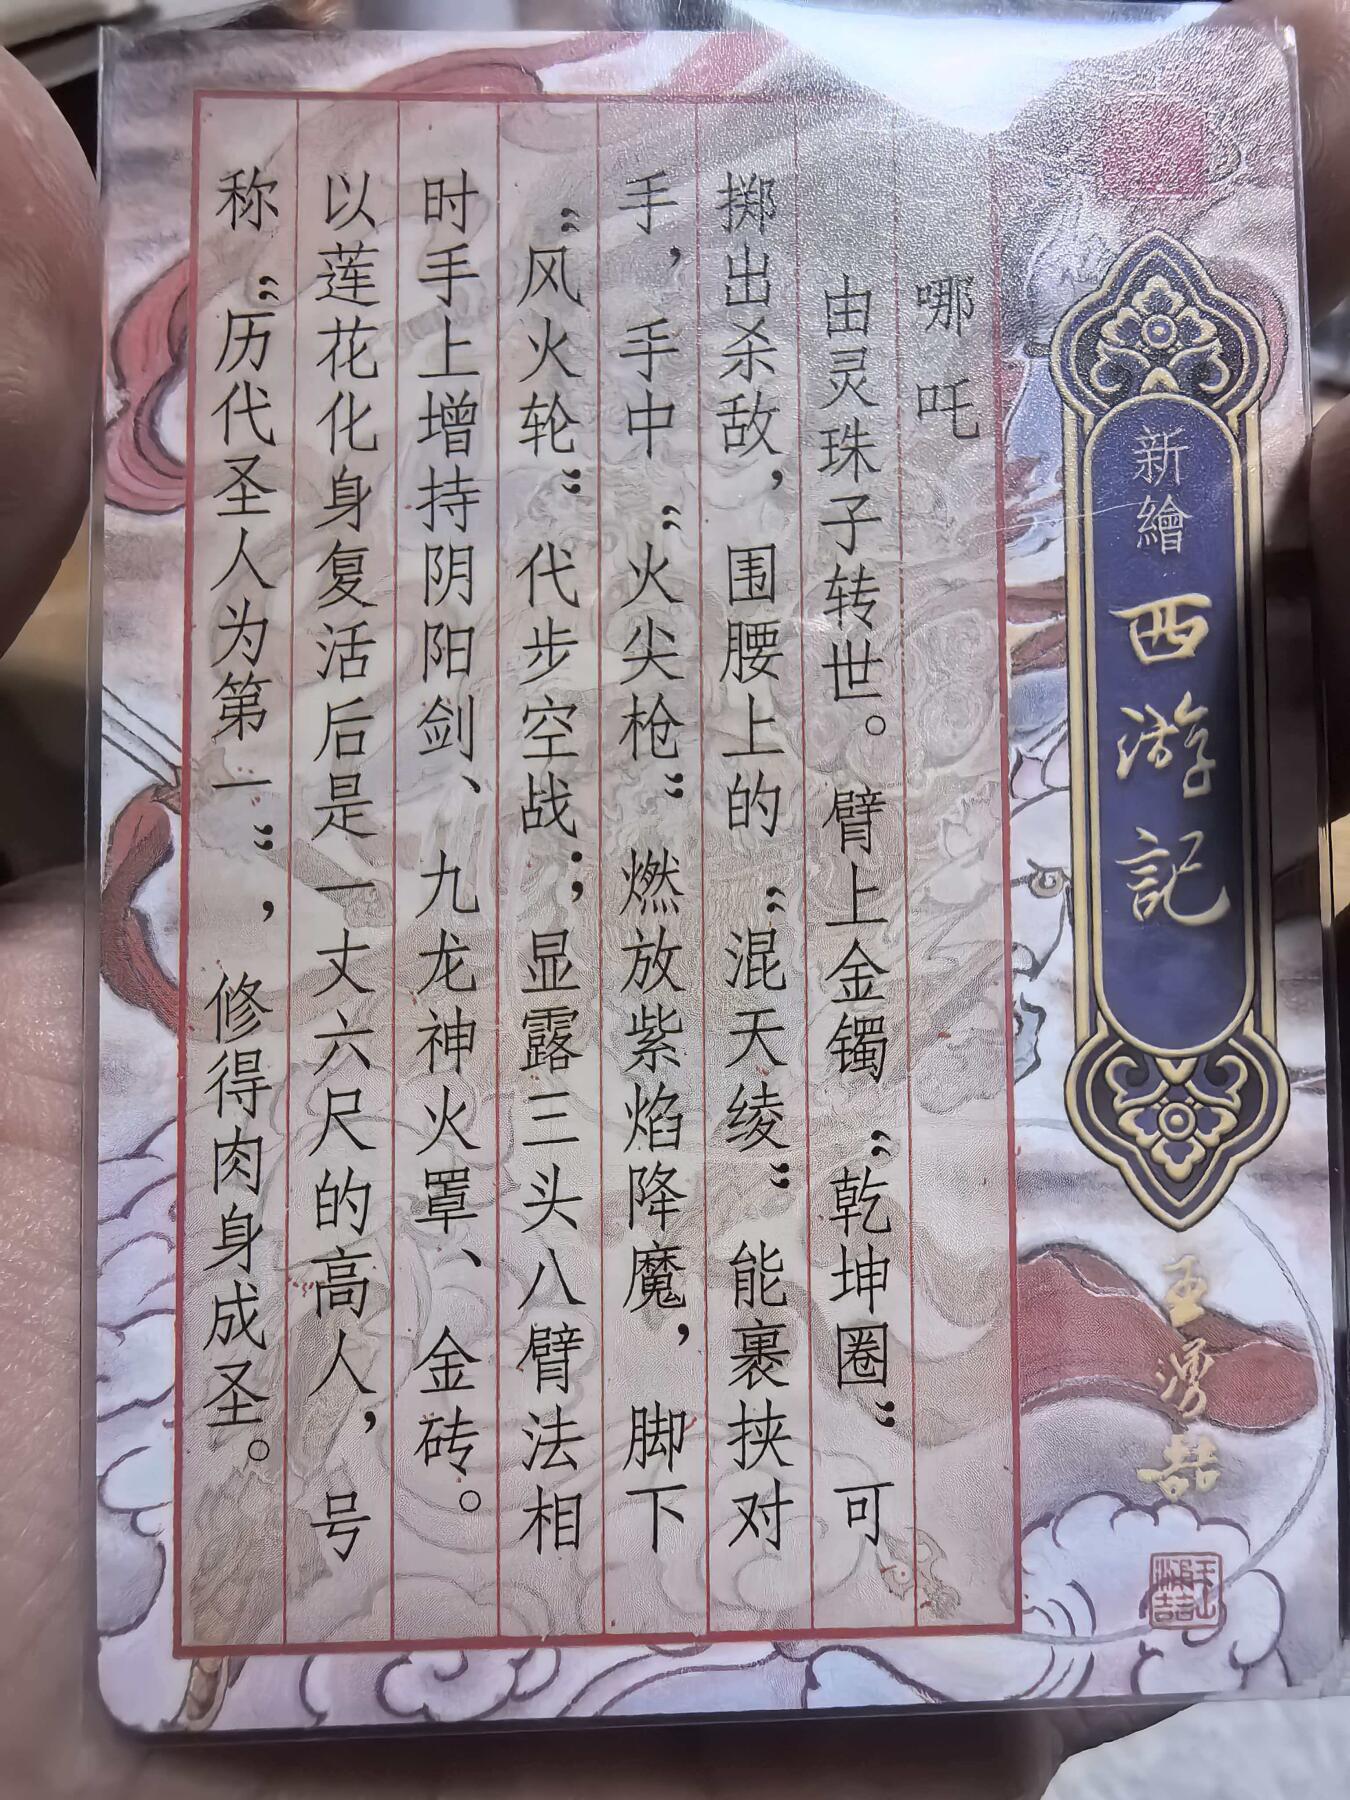 新繪
西游記
王勇喆
哪吒
由灵珠子转世。臂上金镯“乾坤圈”可
掷出杀敌，围腰上的“混天绫”能裹挟对
手，手中“火尖枪”燃放紫焰降魔，脚下
“风火轮”代步空战；显露三头八臂法相
时手上增持阴阳剑、九龙神火罩、金砖。
以莲花化身复活后是一丈六尺的高人，号
称“历代圣人为第一”，修得肉身成圣。